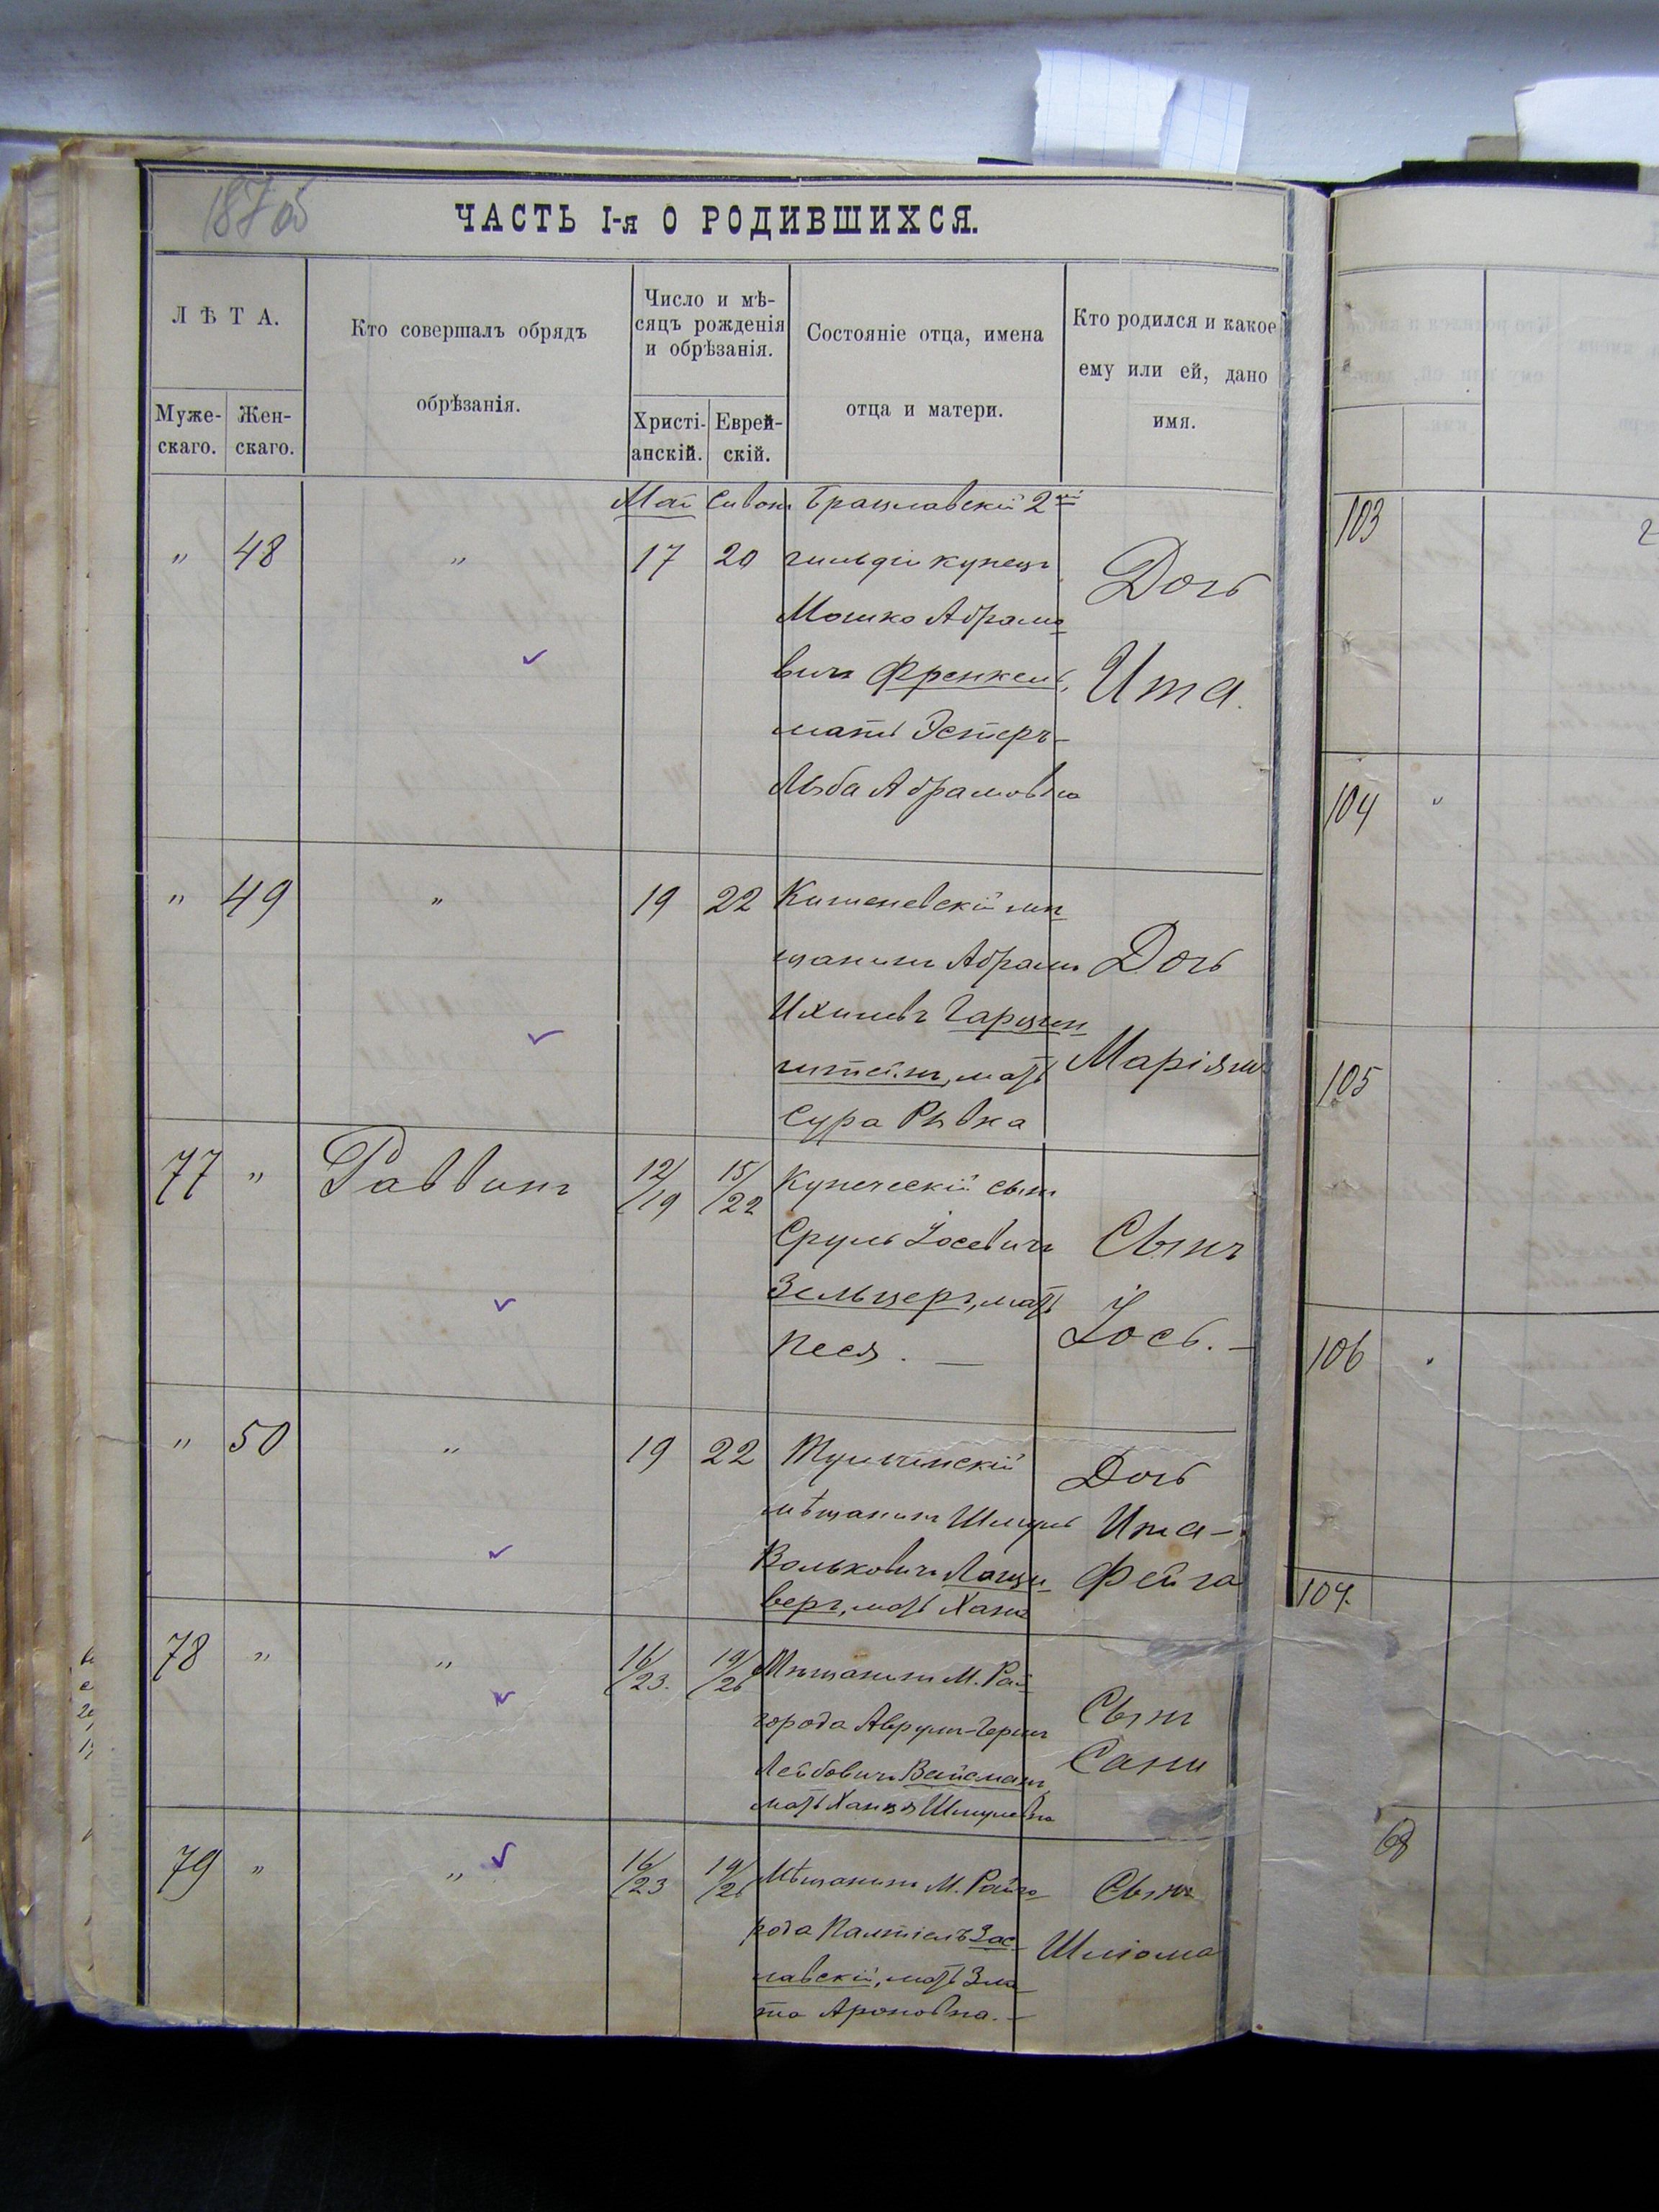 187 об
ЧАСТЬ I-я О РОДИВШИХСЯ.
ЛѢТА.
Муже-
скаго.
Жен-
скаго.
Кто совершалъ обрядъ
обрѣзанія.
Число и мѣ-
сяцъ рожденія
и обрѣзанія.
Христі-
анскій.
Еврей-
скій.
Состояніе отца, имена
отца и матери.
Кто родился и какое
ему или ей, дано
имя.
Май Сивонъ Брацлавскій 2й
" 48 " 17 20 гильдіи купецъ
Мошко Абрамо
вичъ Френкель,
мать Эстеръ-
Лыба Абрамовна
Дочь
Ита.
" 49 " 19 22 Кишеневскій мѣ
щанинъ Абрамъ
Ихилевъ Гарцен
штейнъ, мать
Сура Рывка
Дочь
Маріямъ
77 " Раввинъ 12/19 15/22 Купеческій сынъ
Сруль Іосевичъ
Зельцеръ, мать
Песя. —
Сынъ
Іось. —
" 50 " 19 22 Тульчинскій
мѣщанинъ Шмуль
Вольковичъ
веръ, мать Хана
Дочь
Ита-
Фейга
78 " " 16/23. 19/26 Мѣщанинъ М. Рай
города Аврумъ-Гершъ
Лейбовичъ Вайсманъ,
мать Ханця Шмулевна
Сынъ
Сани
79 " " 16/23 19/26 Мѣщанинъ М. Райго
рода Палтіелъ Зас
лавскій, мать Зла
та Ароновна. —
Сынъ
Шліома
103
104 "
105
106
107.